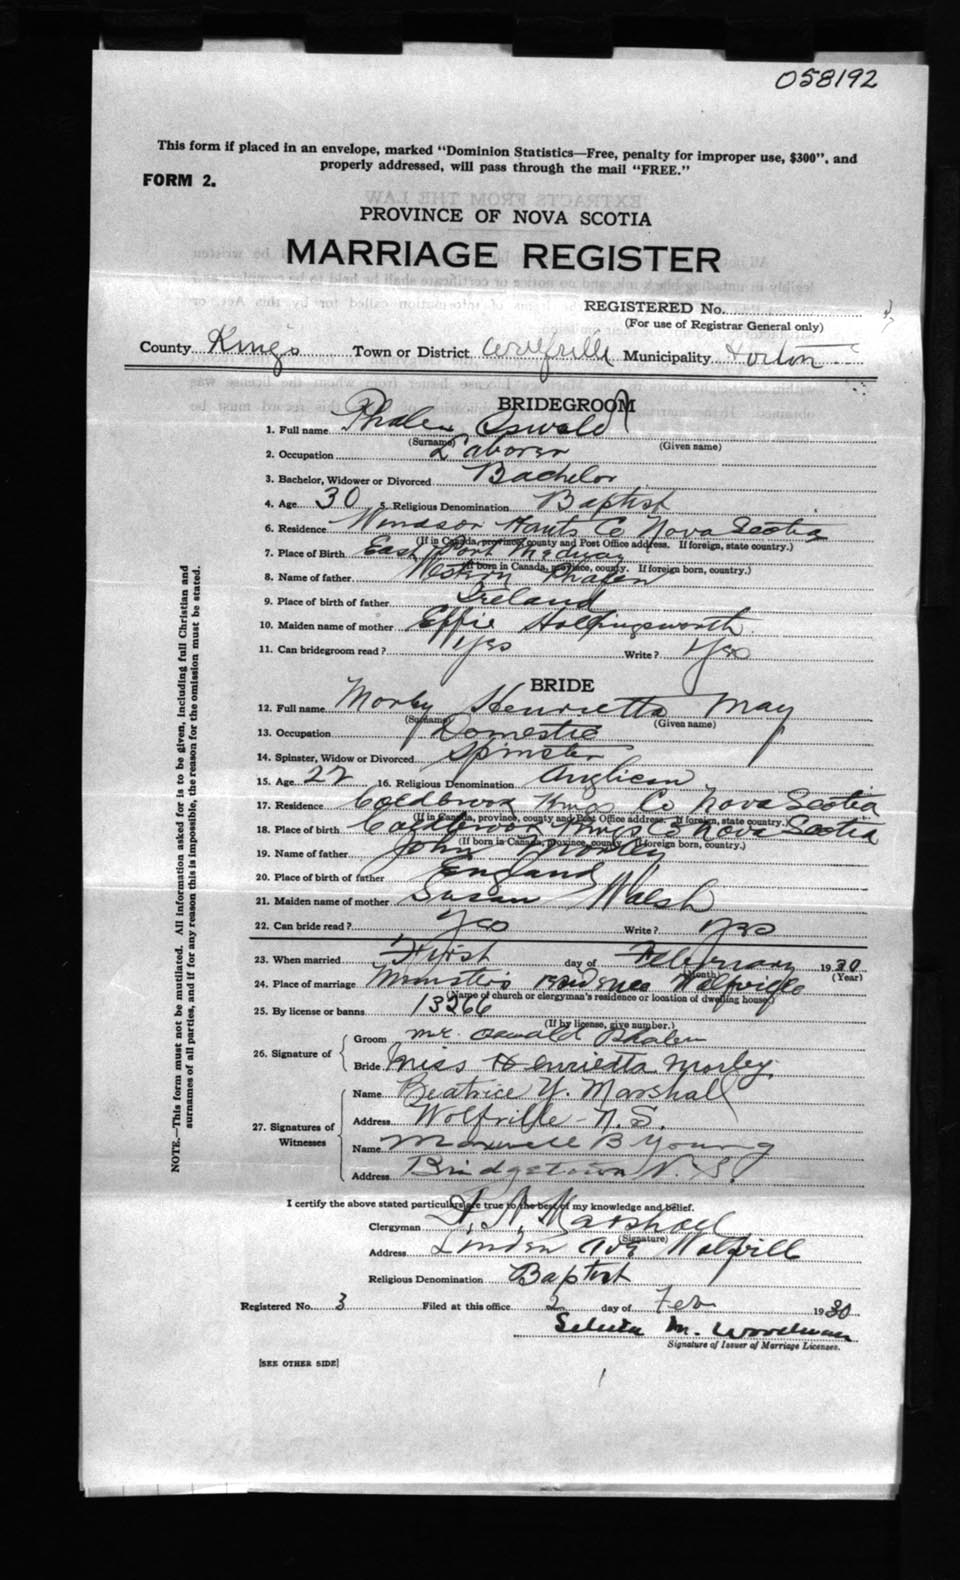 058192
This form if placed in an envelope, marked "Dominion Statistics—Free, penalty for improper use, $300", and
properly addressed, will pass through the mail "FREE."
FORM 2.
PROVINCE OF NOVA SCOTIA
MARRIAGE REGISTER
REGISTERED No.
(For use of Registrar General only)
County Kings Town or District Wolfville Municipality Horton
BRIDEGROOM
1. Full name Phalen Oswald
(Surname) (Given name)
2. Occupation Laborer
3. Bachelor, Widower or Divorced Bachelor
4. Age 30 5. Religious Denomination Baptist
6. Residence Windsor Hants Co Nova Scotia
(If in Canada, province, county and Post Office address. If foreign, state country.)
7. Place of Birth East Port Medway
(If born in Canada, province, county. If foreign born, country.)
8. Name of father Phalen
9. Place of birth of father Ireland
10. Maiden name of mother Effie Hollingsworth
11. Can bridegroom read? Yes Write? Yes
BRIDE
12. Full name Morley Henrietta May
(Surname) (Given name)
13. Occupation Domestic
14. Spinster, Widow or Divorced Spinster
15. Age 22 16. Religious Denomination Anglican
17. Residence Coldbrook Kings Co Nova Scotia
(If in Canada, province, county and Post Office address. If foreign, state country.)
18. Place of birth Coldbrook Kings Co Nova Scotia
(If born in Canada, province, county. If foreign born, country.)
19. Name of father John Morley
20. Place of birth of father England
21. Maiden name of mother Susan Walsh
22. Can bride read? Yes Write? Yes
23. When married First day of February 1930
(Month) (Year)
24. Place of marriage Minister's residence Wolfville
(Name of church or clergyman's residence or location of dwelling house)
25. By license or banns 13266
(If by license, give number.)
26. Signature of Groom Mr. Oswald Phalen
Bride Miss Henrietta Morley
27. Signatures of Witnesses Name Beatrice Y. Marshall
Address Wolfville N.S.
Name Maxwell B Young
Address Bridgetown N.S.
I certify the above stated particulars are true to the best of my knowledge and belief.
Clergyman Marshall
(Signature)
Address Linden Ave Wolfville
Religious Denomination Baptist
Registered No. 3 Filed at this office 2 day of Feb 1930
M. Woodman
Signature of Issuer of Marriage Licenses.
[SEE OTHER SIDE]
NOTE.—This form must not be mutilated. All information asked for is to be given, including full Christian and
surnames of all parties, and if for any reason this is impossible, the reason for the omission must be stated.